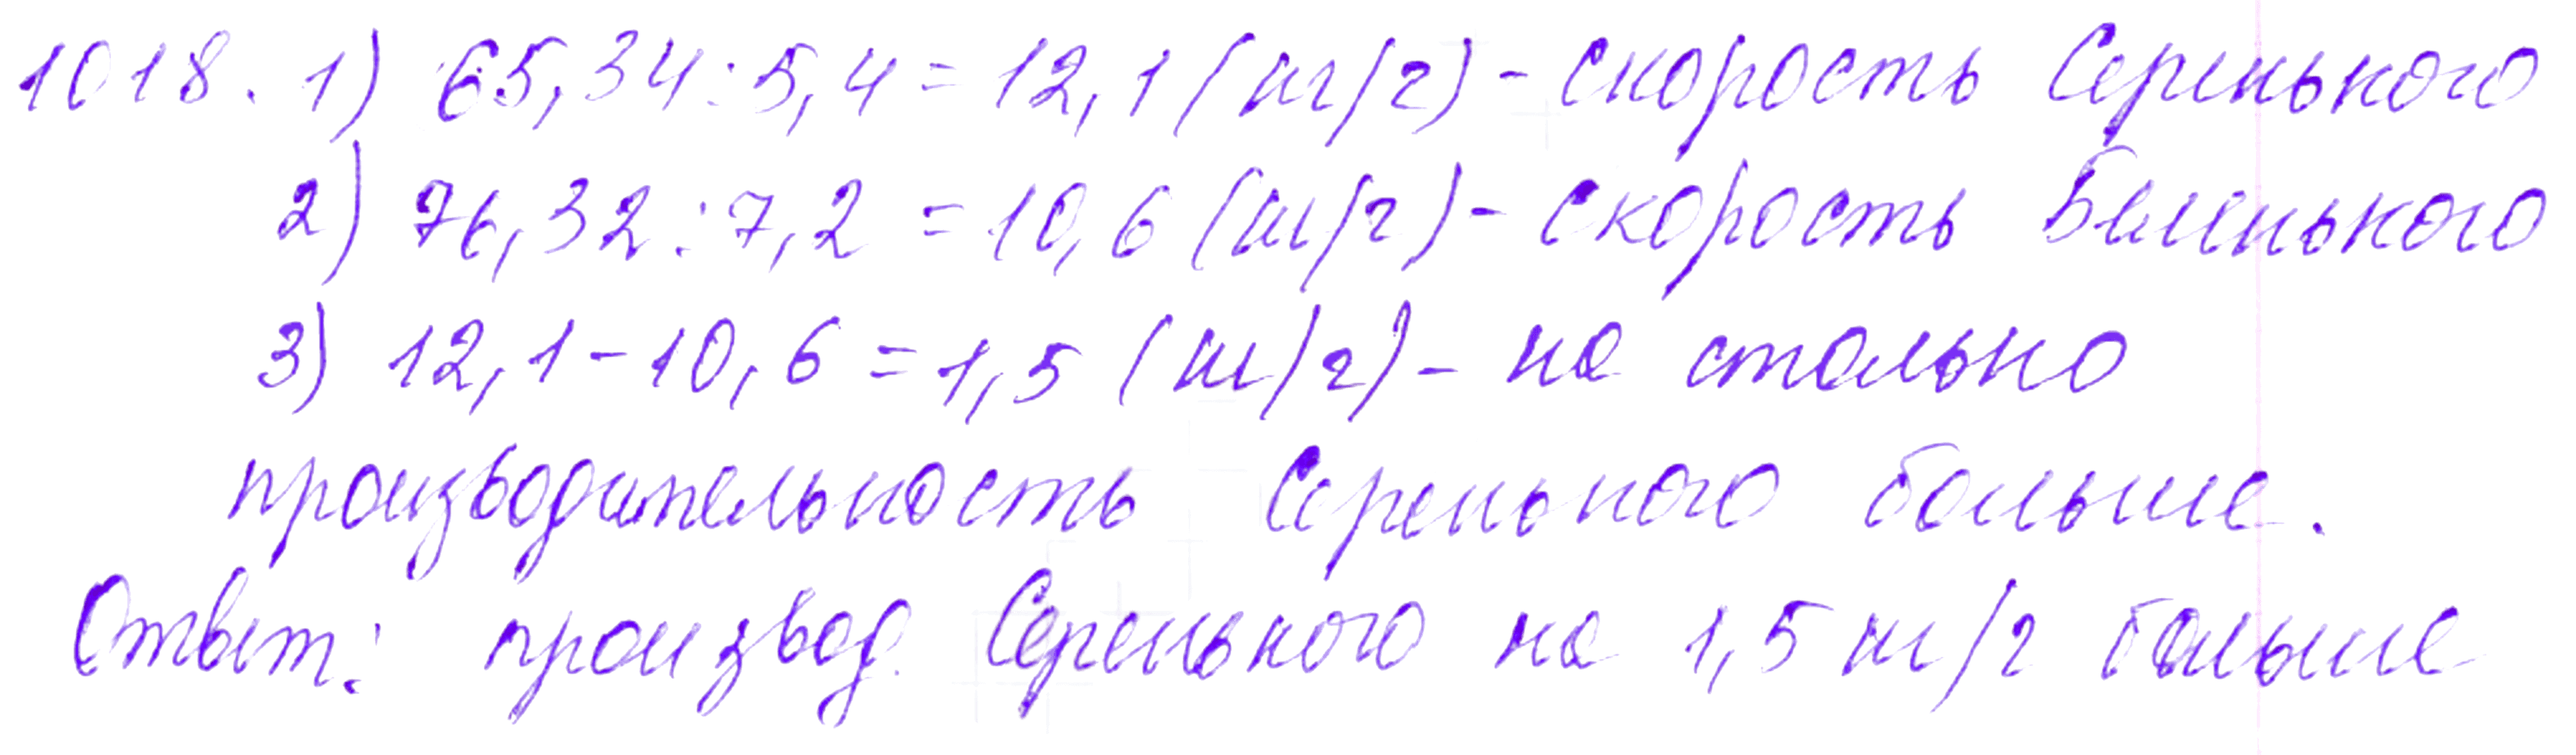 1018. 1) 65,34 : 5,4 = 12,1 (кг/г) - скорость Серенького
2) 76,32 : 7,2 = 10,6 (кг/г) - скорость Беленького
3) 12,1 - 10,6 = 1,5 (кг/г) - на столько
производительность Серенького больше.
Ответ: производ. Серенького на 1,5 кг/г больше